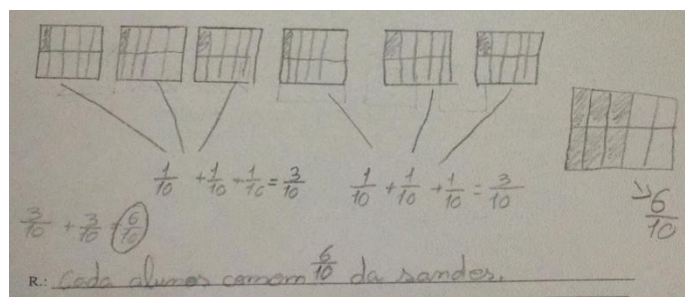 1/10 + 1/10 + 1/10 = 3/10
1/10 + 1/10 + 1/10 = 3/10
6/10
3/10 + 3/10 = 6/10
R.: Cada alunos comem 6/10 da sandes.